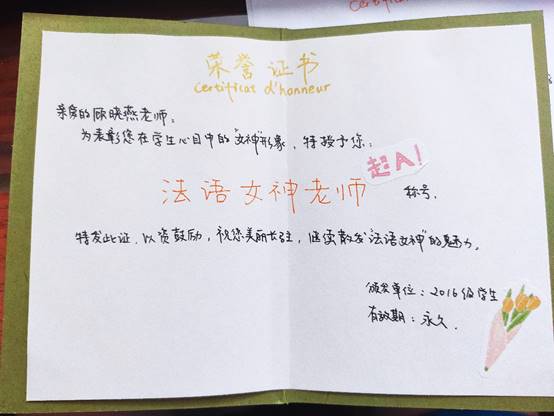 荣誉证书
Certificat d'honneur
亲爱的顾晓燕老师:
为表彰您在学生心目中的"女神"形象,特授予您:
超A!
法语女神老师 称号.
特发此证.以资鼓励,祝您美丽长驻,继续散发"法语女神"的魅力。
颁发单位:2016级学生
有效期:永久.